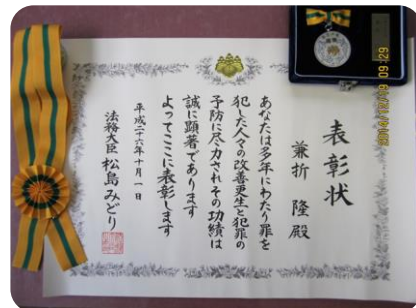 表彰状
兼折 隆 殿
あなたは多年にわたり罪を
犯した人々の改善更生と犯罪の
予防に尽力されその功績は
誠に顕著であります
よってここに表彰します
平成二十六年十月一日
法務大臣 松島みどり